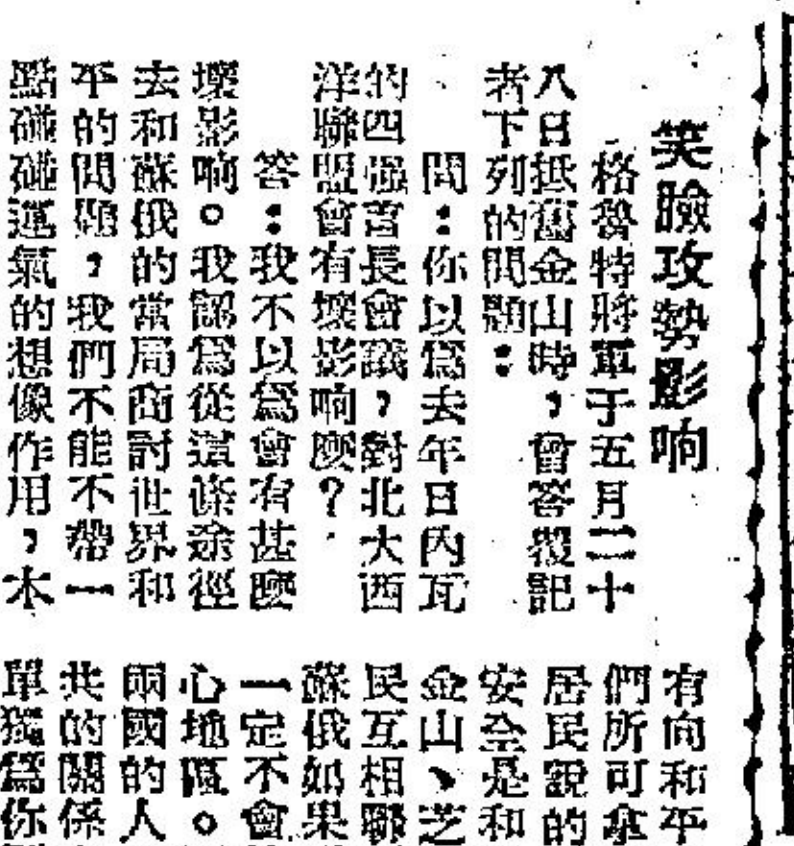 笑臉攻勢影响
格魯特將軍于五月二十
八日抵舊金山時,曾答覆記
者下列的問題:
問:你以爲去年日內瓦
的四强首長會議,對北大西
洋聯盟會有壞影响麽?
答:我不以爲會有甚麽
壞影响。我認爲從這條途徑
去和蘇俄的當局商討世界和
平的問題,我們不能不帶一
點碰碰運氣的想像作用,本
有向和平
們所可拿
居民說的
安全是和
金山、芝
民互相聯
蘇俄如果
一定不會
心地區。
兩國的人
共的關係
單獨爲你